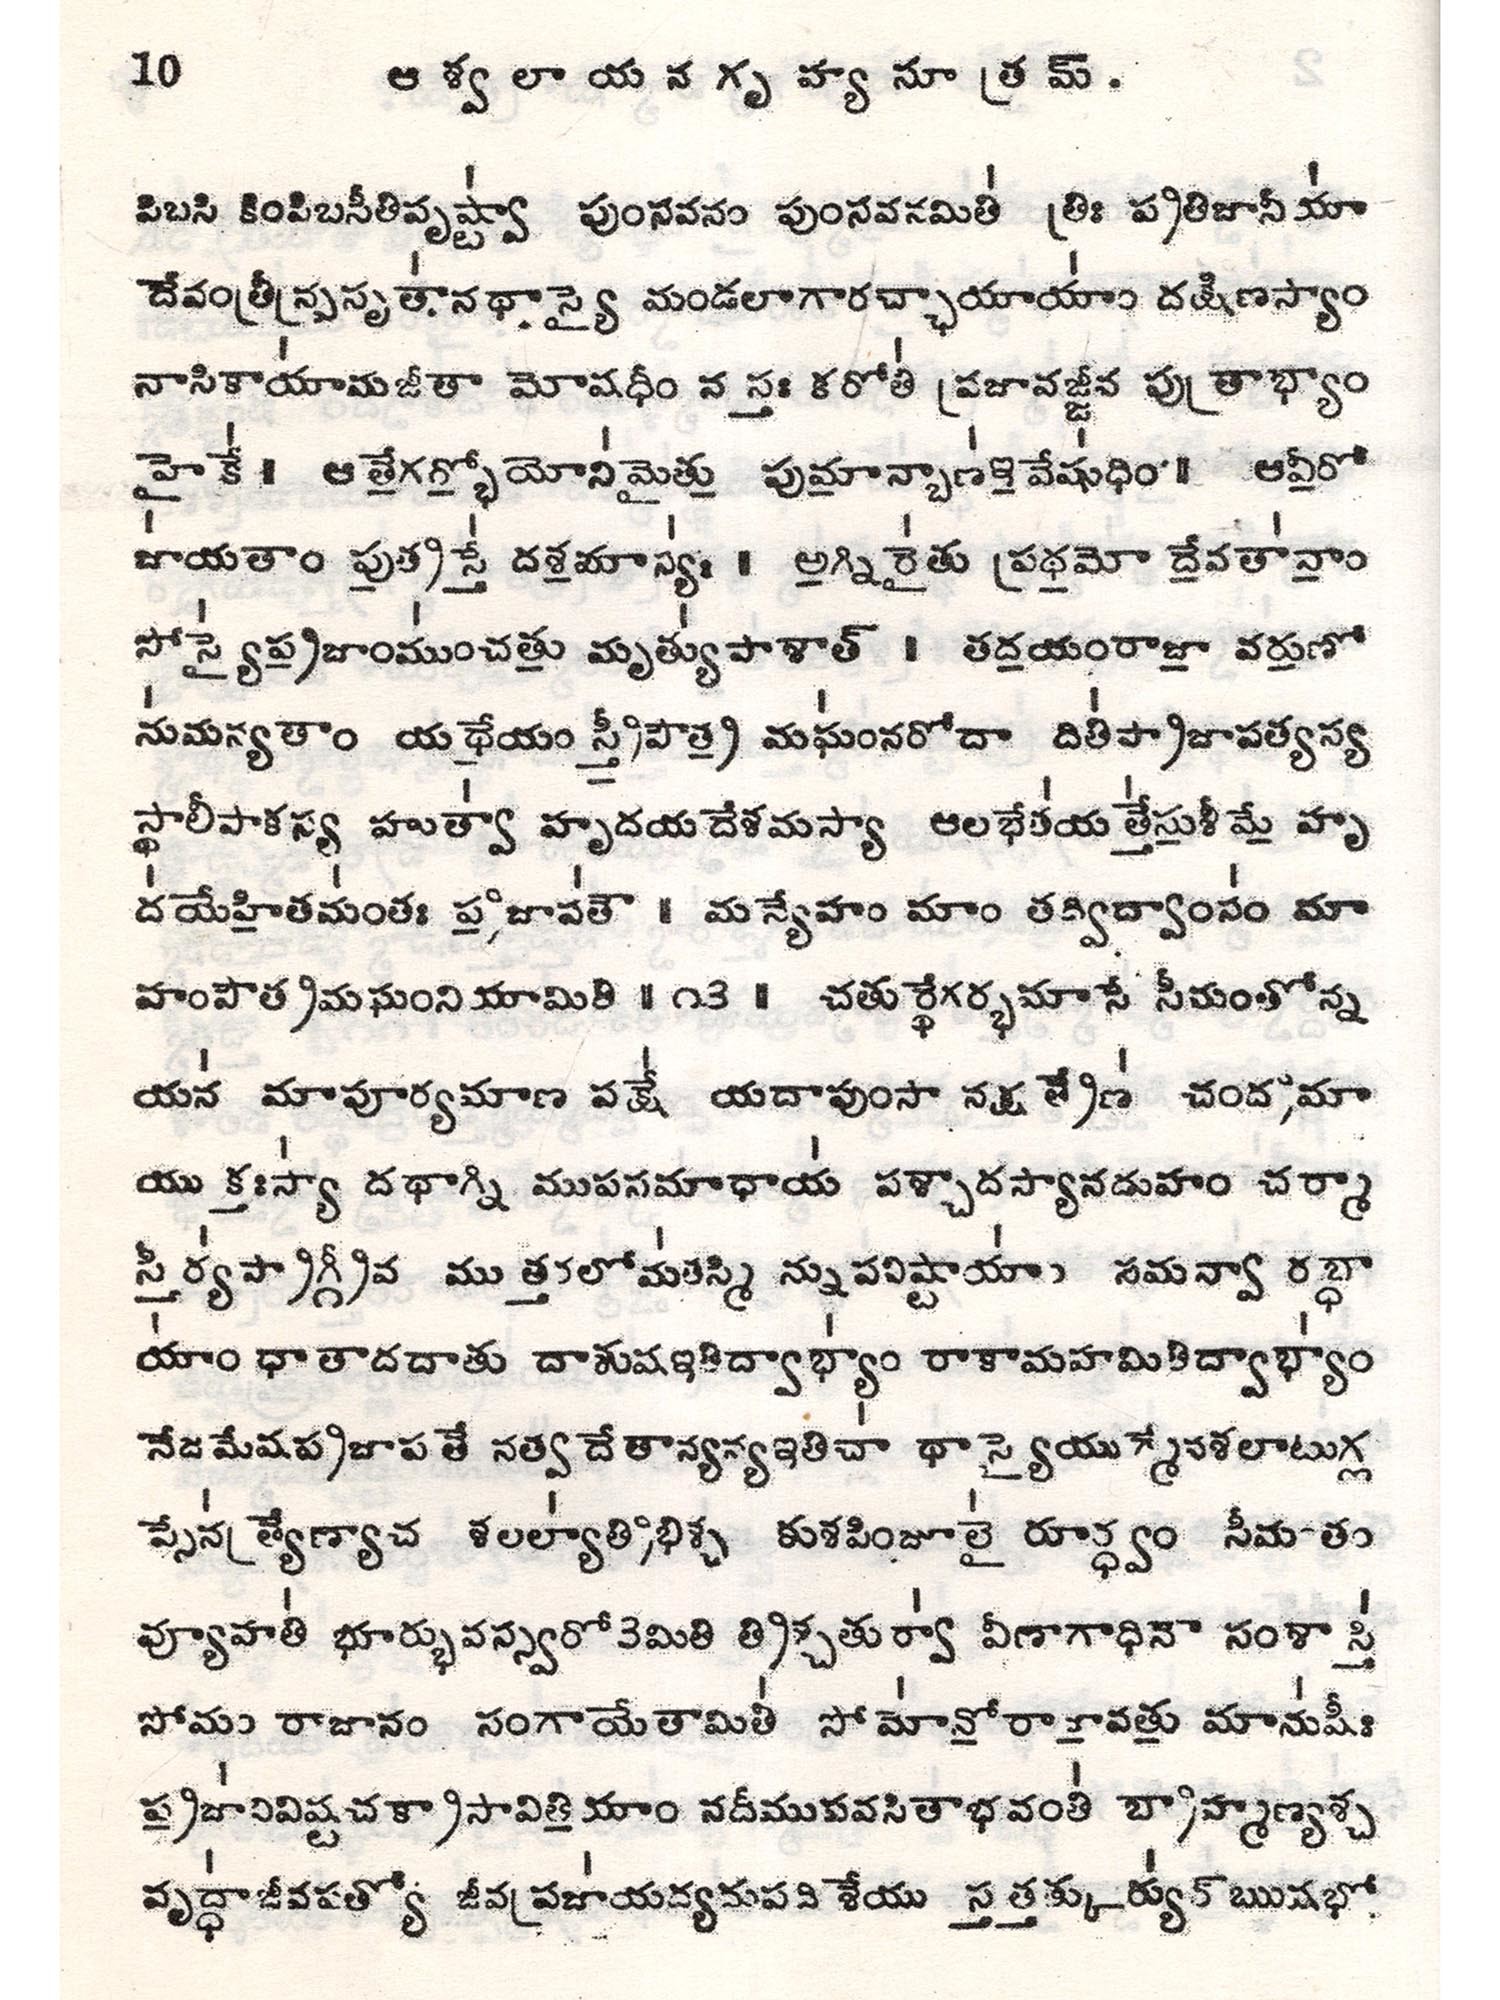 10 ఆశ్వలాయనగృహ్యసూత్రమ్.
పిబసి కింపిబసీతిపృష్ట్వా పుంసవనం పుంసవనమితి త్రిః ప్రతిజానీయా
దేవంత్రీన్ప్రసృతానథాస్యై మండలాగారచ్ఛాయాయాం దక్షిణస్యాం
నాసికాయామజీతా మోషధీం నస్తః కరోతి ప్రజావజ్జీవ పుత్రాభ్యాం
హైకే ॥ ఆతేగర్భోయోనిమైతు పుమాన్బాణఇవేషుధిం ॥ ఆవీరో
జాయతాం పుత్రస్తే దశమాస్యః ॥ అగ్నిరైతు ప్రథమో దేవతానాం
సోస్యైప్రజాంముంచతు మృత్యుపాశాత్ ॥ తదయంరాజా వరుణో
నుమన్యతాం యథేయంస్త్రీపౌత్ర మఘంనరోదా దితిప్రాజాపత్యస్య
స్థాలీపాకస్య హుత్వా హృదయదేశమస్యా ఆలభేతయత్తేసుశీమే హృ
దయేహితమంతః ప్రజాపతౌ ॥ మన్యేహం మాం తద్విద్వాంసం మా
హంపౌత్రమఘంనియామితి ॥ ౧౩ ॥ చతుర్థేగర్భమాసే సీమంతోన్న
యన మాపూర్యమాణ పక్షే యదాపుంసా నక్షత్రేణ చంద్రమా
యుక్తఃస్యా దథాగ్ని ముపసమాధాయ పశ్చాదస్యానడుహం చర్మా
స్తీర్యప్రాగ్గ్రీవ ముత్తరలోమతస్మి న్నుపవిష్టాయాం సమన్వారబ్ధా
యాం ధాతాదదాతు దాశుషఇతిద్వాభ్యాం రాకామహమితిద్వాభ్యాం
నేజమేషప్రజాపతే నత్వదేతాన్యన్యఇతిచా థాస్యైయుగ్మేనశలాటుగ్ల
ప్సేనత్ర్యేణ్యాచ శలల్యాత్రిభిశ్చ కుశపింజూలై రూర్ధ్వం సీమంతం
వ్యూహతి భూర్భువస్స్వరో౩మితి త్రిశ్చతుర్వా వీణాగాధినౌ సంశాస్తి
సోమం రాజానం సంగాయేతామితి సోమోనోరాజావతు మానుషీః
ప్రజానివిష్టచక్రాసావితియాం నదీముపవసితాభవంతి బ్రాహ్మణ్యశ్చ
వృద్ధాజీవపత్యో జీవప్రజాయద్యదుపదిశేయు స్తత్తత్కుర్యుర్ ఋషభో